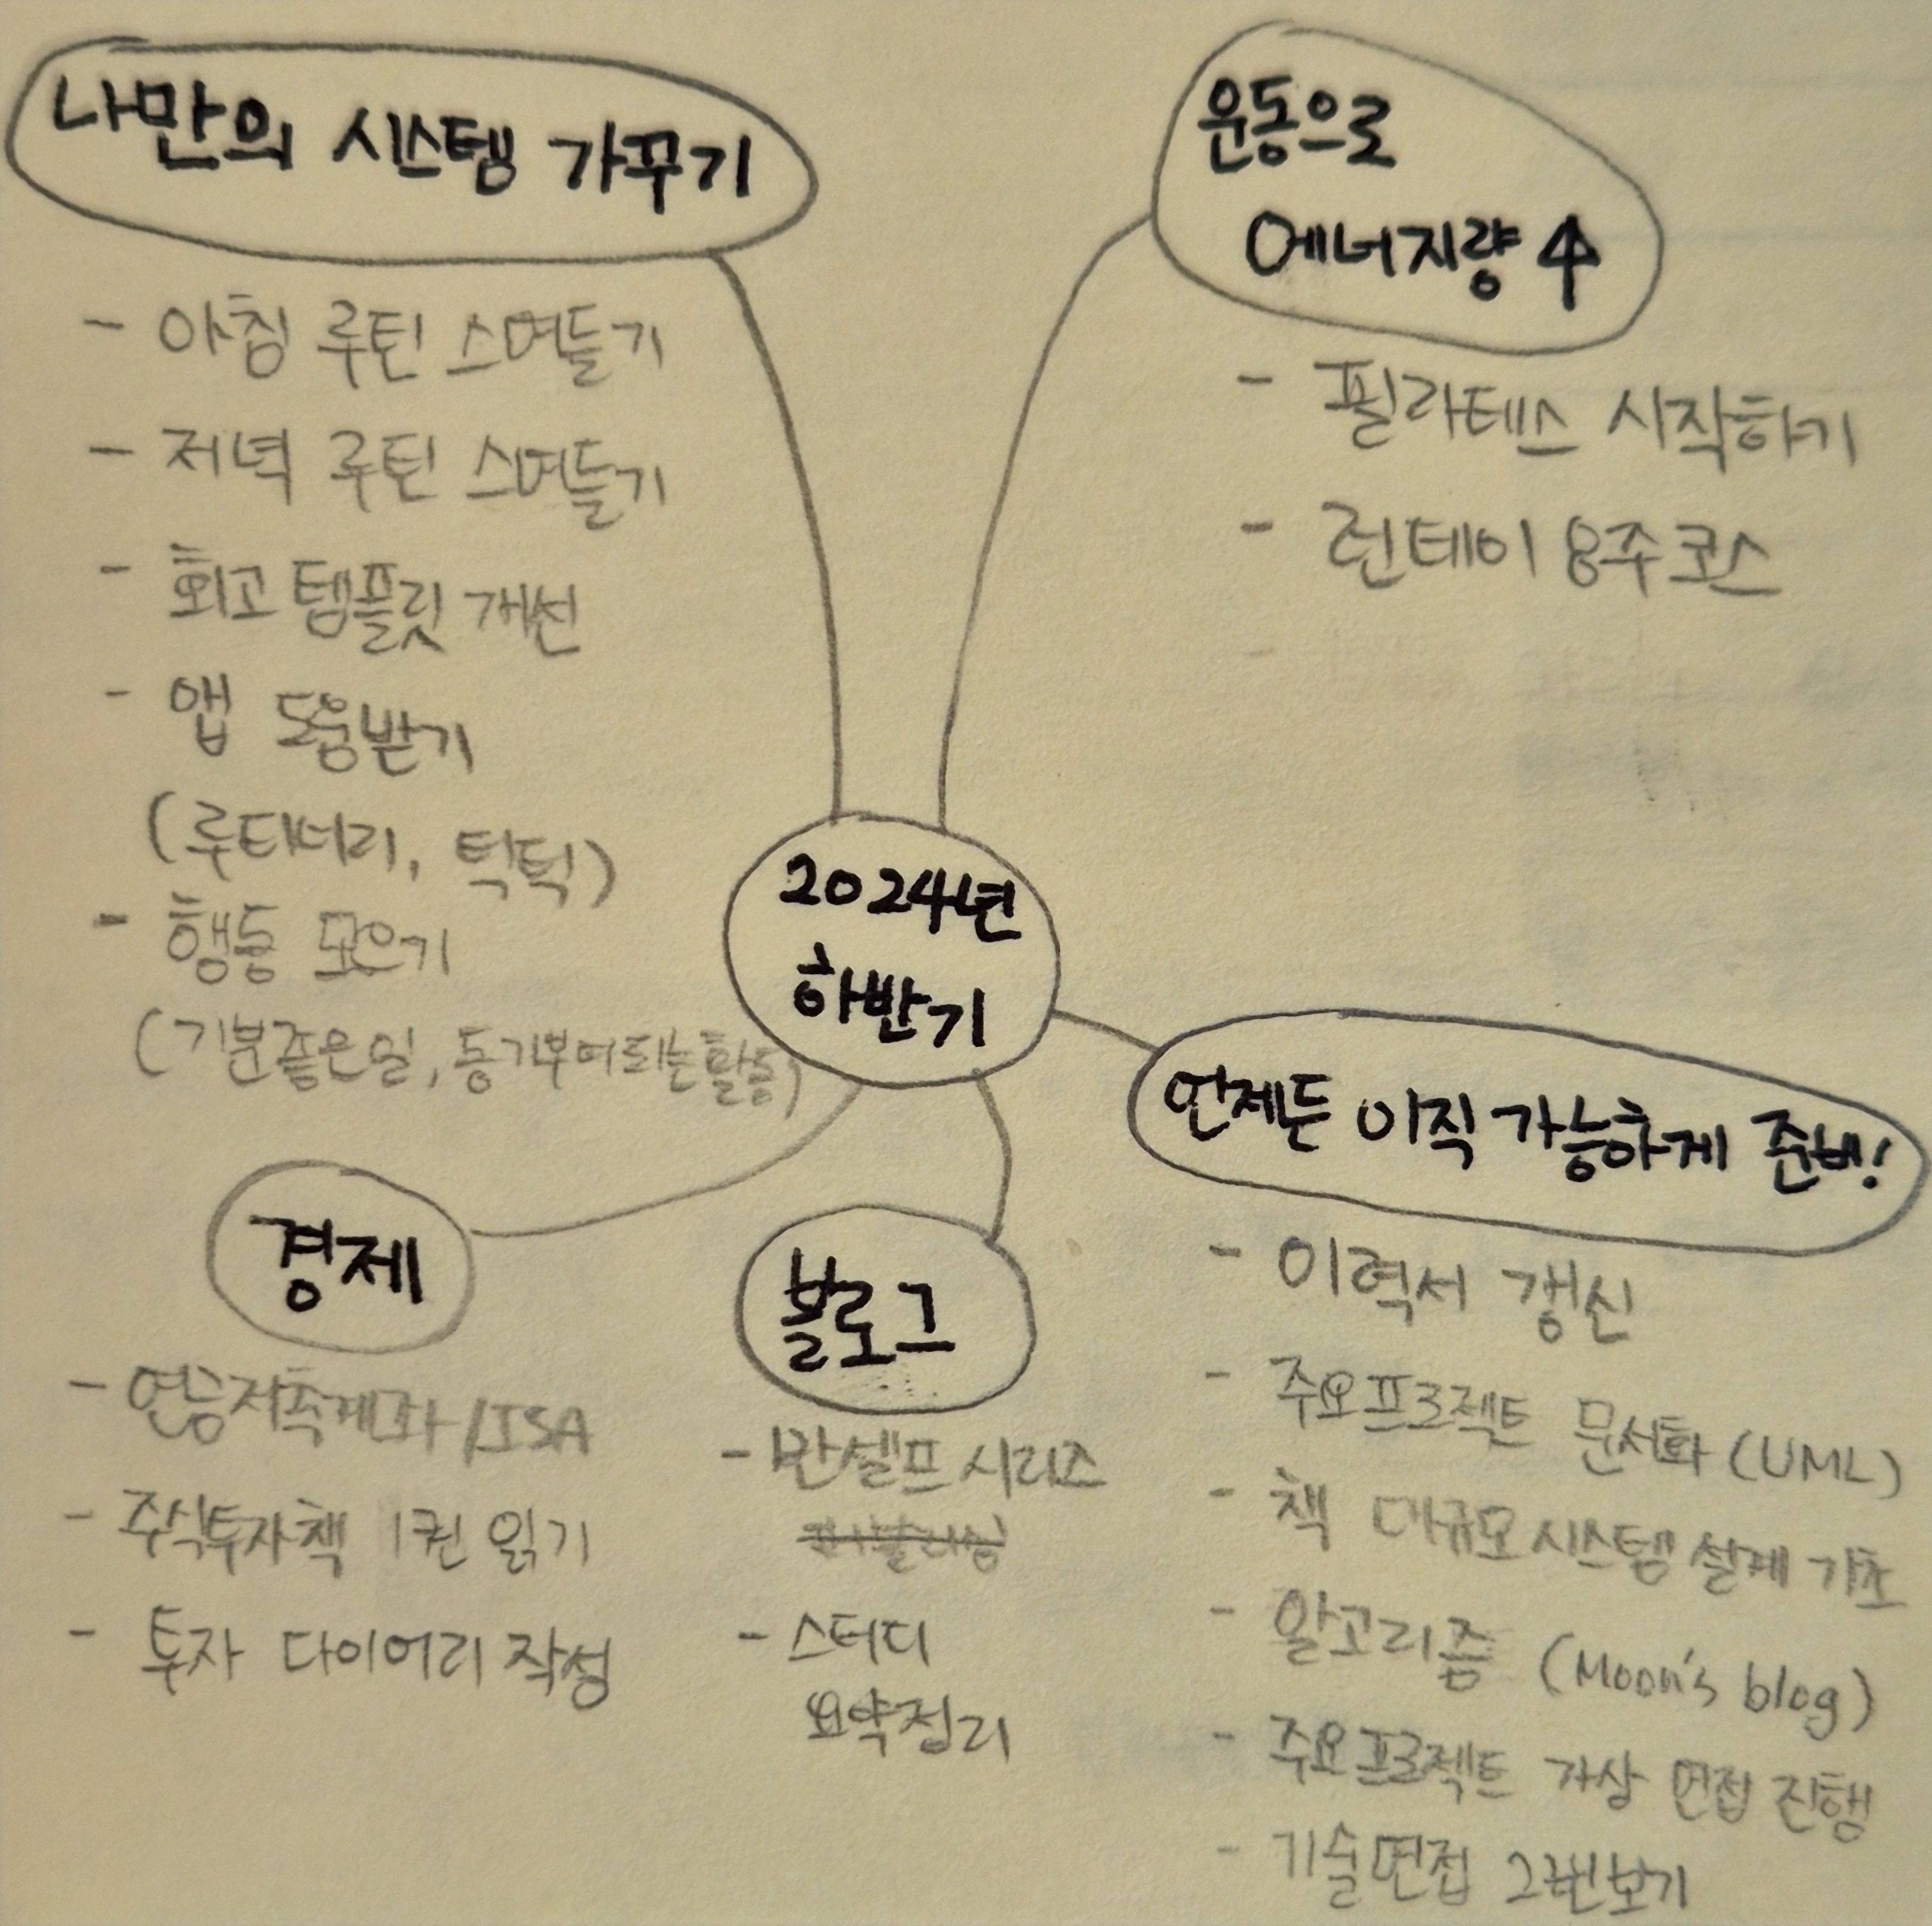 나만의 시스템 가꾸기
- 아침 루틴 스며들기
- 저녁 루틴 스며들기
- 회고 템플릿 개선
- 앱 도움받기
(루티너리, 틱틱)
- 행동 모으기
(기분좋은일, 동기부여되는활동)
운동으로
에너지량 ↑
- 필라테스 시작하기
- 런데이 8주코스
2024년
하반기
언제든 이직 가능하게 준비!
- 이력서 갱신
- 주요프로젝트 문서화 (UML)
- 책 대규모시스템 설계 기초
- 알고리즘 (Moon's blog)
- 주요프로젝트 가상 면접 진행
- 기술면접 2번보기
경제
- 연금저축계좌/ISA
- 주식투자책 1권 읽기
- 투자 다이어리 작성
블로그
- 반셀프 시리즈
- 스터디
요약정리